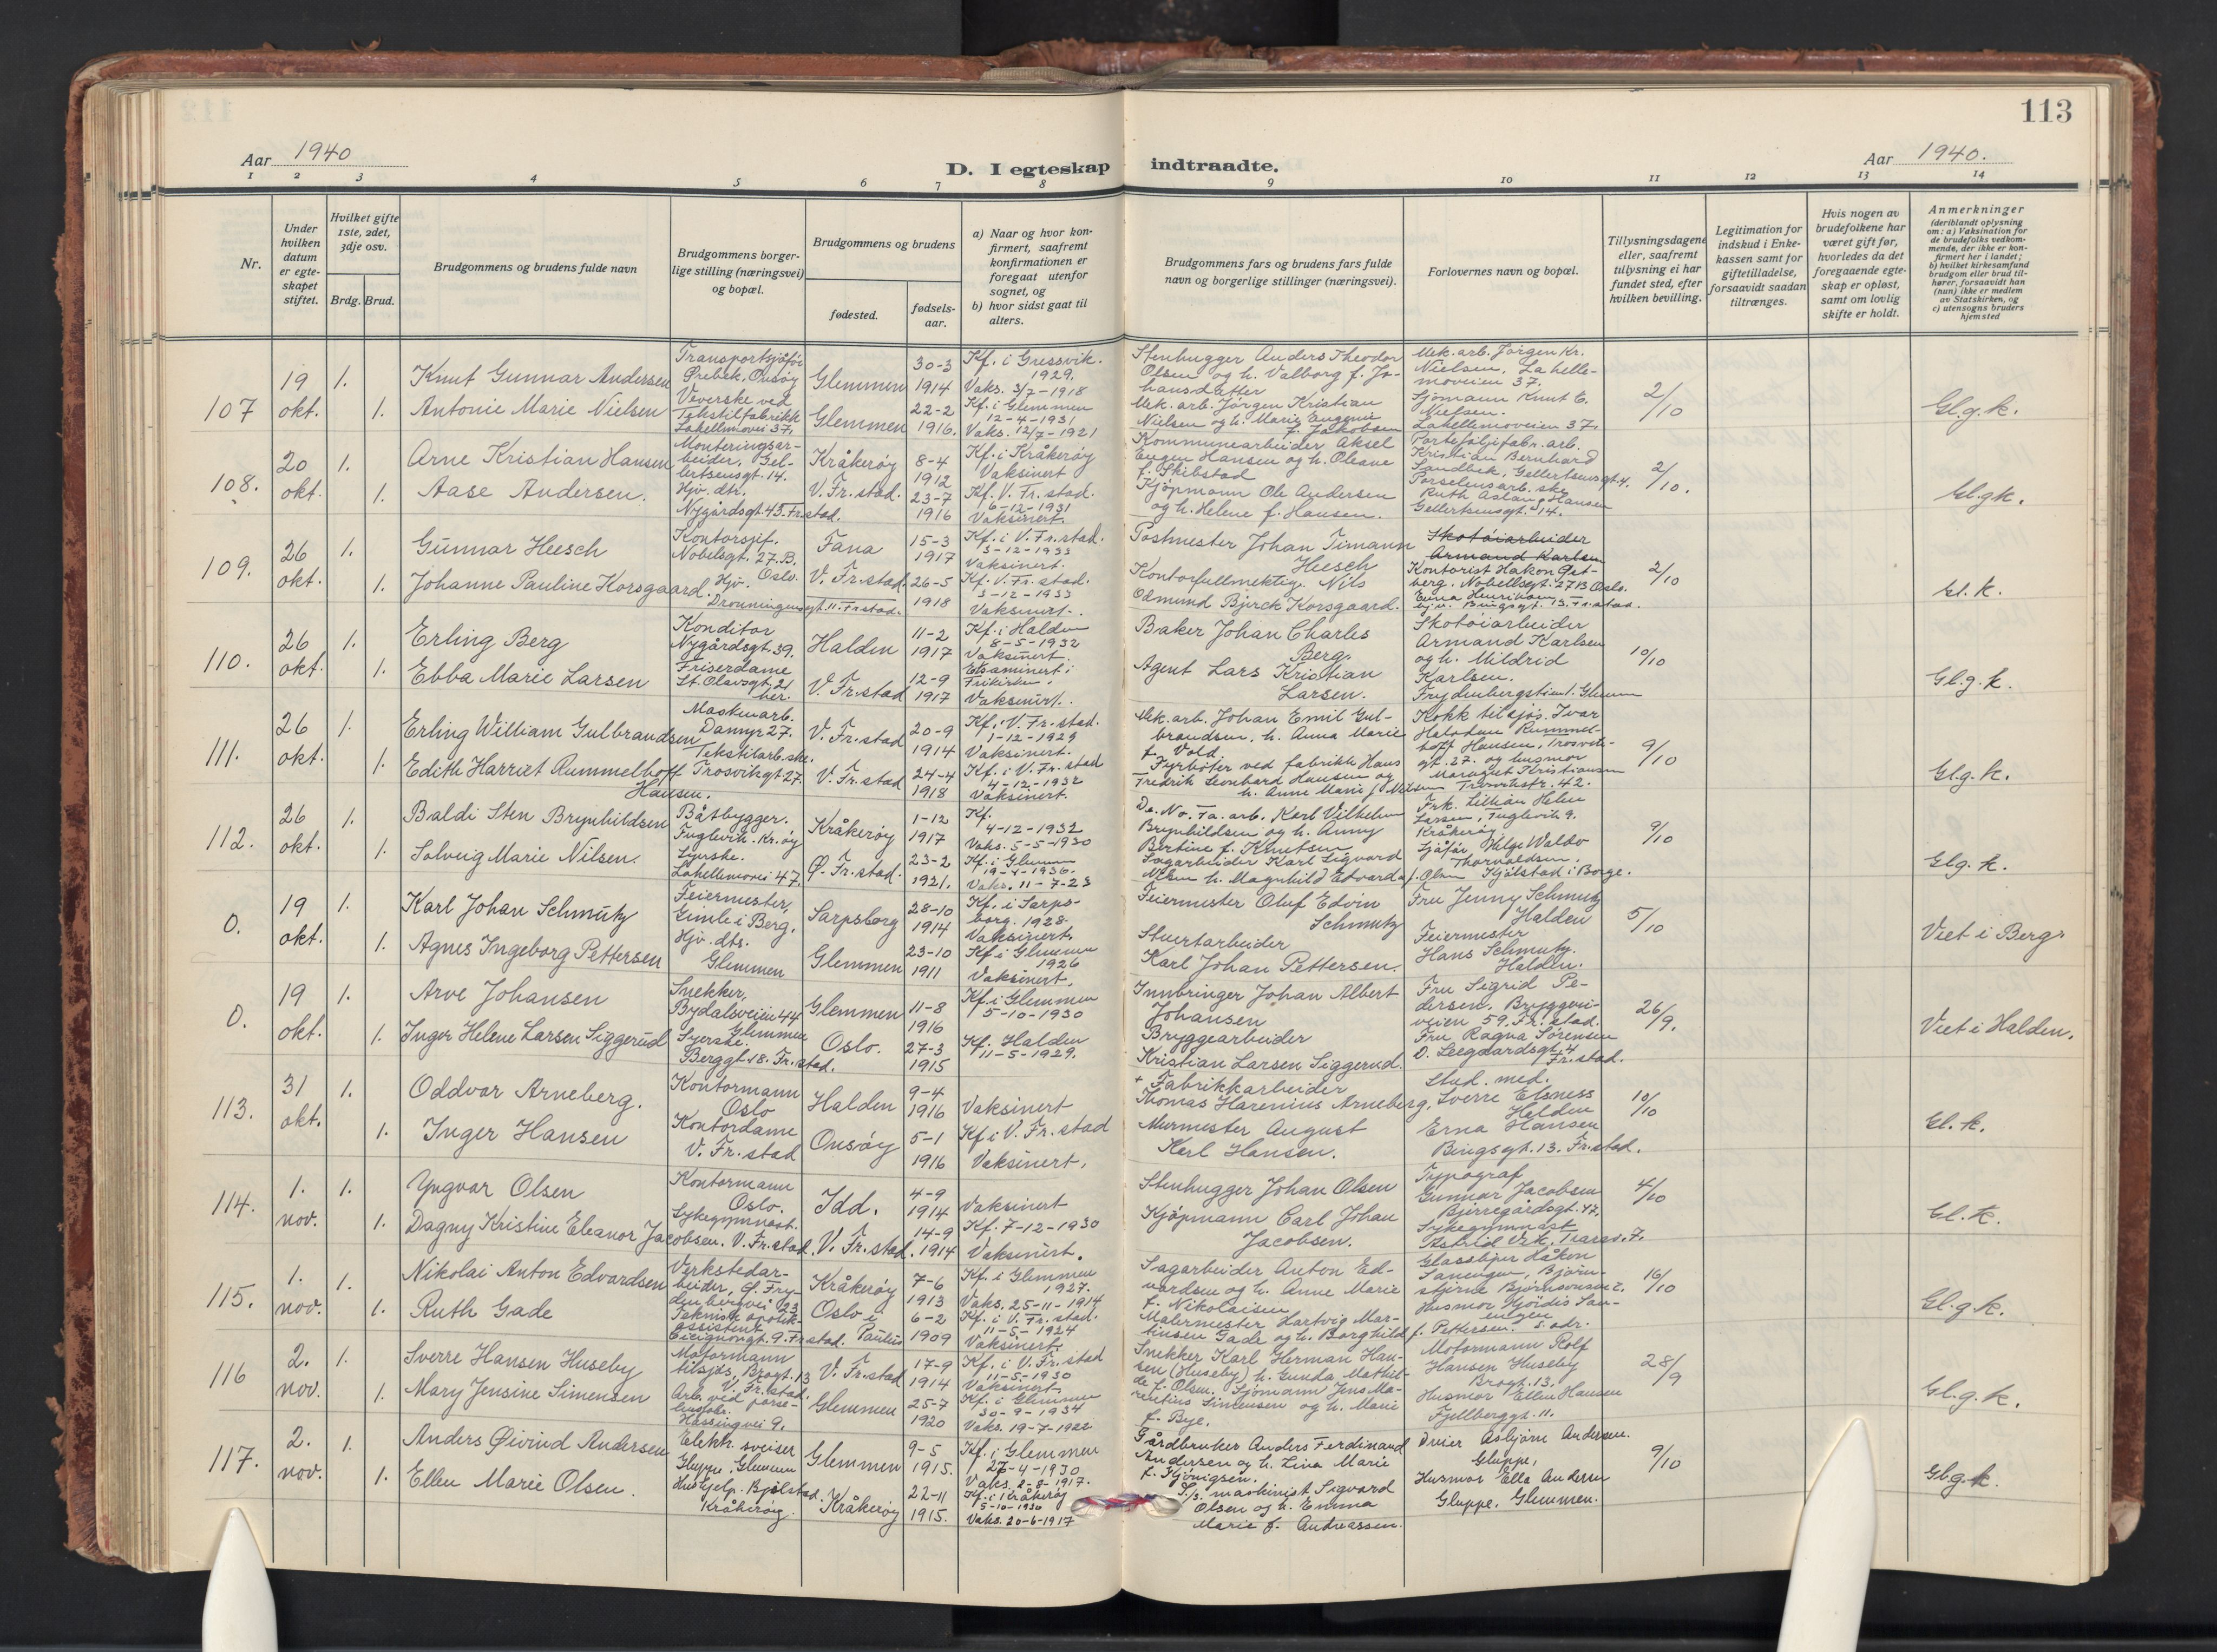 113
Aar 1940
D. I egteskap indtraadte.
Aar 1940.
1 2 3 4 5 6 7 8 9 10 11 12 13 14
Nr.
Under hvilken datum er egte-skapet stiftet.
Hvilket gifte 1ste, 2det, 3dje osv.
Brdg. Brud.
Brudgommens og brudens fulde navn
Brudgommens borger-lige stilling (næringsvei) og bopæl.
Brudgommens og brudens
fødested.
fødsels-aar.
a) Naar og hvor kon-firmert, saafremt konfirmationen er foregaat utenfor sognet, og
b) hvor sidst gaat til alters.
Brudgommens fars og brudens fars fulde navn og borgerlige stillinger (næringsvei).
Forlovernes navn og bopæl.
Tillysningsdagene eller, saafremt tillysning ei har fundet sted, efter hvilken bevilling.
Legitimation for indskud i Enke-kassen samt for giftetilladelse, forsaavidt saadan tiltrænges.
Hvis nogen av brudefolkene har været gift før, hvorledes da det foregaaende egte-skap er opløst, samt om lovlig skifte er holdt.
Anmerkninger
(deriblandt oplysning om: a) Vaksination for de brudefolks vedkom-mende, der ikke er kon-firmert her i landet; b) hvilket kirkesamfund brudgom eller brud til-hører, forsaavidt han (hun) ikke er medlem av Statskirken, og c) utensogns bruders hjemsted
107 19 okt. 1. Knut Gunnar Andersen
Transportsjåfør Ørebek, Onsøy
Glemmen 30-3 1914
Kf. i Gressvik. 1929.
Vaks. 3/7-1918
Stenhugger Anders Theodor Olsen og h. Valborg f. Johansdatter
Mek. arb. Jørgen Kr. Nielsen, Lahellemoveien 37.
2/10
Gl.g.k.
1. Antonie Marie Nielsen
Veverske ved Tekstilfabrikk Lahellemovei 37.
Glemmen 22-2 1916.
Kf. i Glemmen 12-4-1931
Vaks. 12/7-1921
Mek. arb. Jørgen Kristian Nielsen og h. Marie Eugenie f. Jakobsen
Sjømann Knut E. Nielsen. Lahellemoveien 37.
108. 20 okt. 1. Arne Kristian Hansen
Monteringsarbeider, Gellertsensgt. 14.
Kråkerøy 8-4 1912
Kf. i Kråkerøy Vaksinert
Kommunearbeider Aksel Eugen Hansen og h. Oleane f. Skibstad
Porteføljefabr. arb. Kristian Bernhard Sandbek, Gellertsensgt. 4.
2/10.
Gl.gk.
1. Aase Andersen.
Hjv. dtr. Nygårdsgt. 45. Fr.stad.
V. Fr.stad. 23-7 1916
Kf. V. Fr.stad. 6-12-1931
Vaksinert.
Kjøpmann Ole Andersen og h. Helene f. Hansen.
Porselensarb.ske Ruth Aslaug Hansen Gellertsensgt. 14.
109. 26 okt. 1. Gunnar Heesch
Kontorsjef. Nobelsgt. 27.B. Oslo.
Fana 15-3 1917
Kf. i V. Fr.stad. 3-12-1933
Vaksinert.
Postmester Johan Timann Heesch
Skotøiarbeider Armand Karlsen
Kontorist Håkon Østberg. Nobellsgt. 27B Oslo.
2/10
Gl. k.
1. Johanne Pauline Korsgaard.
Hjv. Dronningensgt. 11. Fr.stad.
V. Fr.stad. 26-5 1918
Kf. V. Fr.stad. 3-12-1933
Vaksinert.
Kontorfullmektig. Nils Odmund Bjerck Korsgaard.
Erna Henriksen, hjv. Bingsgt. 13. Fr.stad.
110. 26 okt. 1. Erling Berg
Konditor Nygårdsgt. 39.
Halden 11-2 1917
Kf. i Halden 8-5-1932
Vaksinert.
Baker Johan Charles Berg.
Skotøiarbeider Armand Karlsen og h. Mildrid Karlsen. Frydenbergstien 1. Glemmen
10/10
Gl.g.k.
1. Ebba Marie Larsen
Friserdame St. Olavsgt. 21 her.
V. Fr.stad 12-9 1917
Eksaminert i Frikirken.
Vaksinert.
Agent Lars Kristian Larsen.
111. 26 okt. 1. Erling William Gulbrandsen
Maskinarb. Damyr 27.
V. Fr.stad 20-9 1914
Kf. i V. Fr.stad. 1-12-1929
Vaksinert.
Mek. arb. Johan Emil Gulbrandsen, h. Anna Marie f. Vold.
Kokk tilsjøs. Ivar Halodan Rummelhoff Hansen, Trosvikgt. 27. og husmor
9/10
Gl.g.k.
1. Edith Harriet Rummelhoff Hansen.
Tekstilarb.ske. Trosvikgt 27.
V. Fr.stad 24-4 1918
Kf. i V. Fr.stad 4-12-1932
Vaksinert.
Fyrbøter ved fabrikk Hans Fredrik Leonhard Hansen og h. Anne Marie f. Nilsen
Margaret Kristiansen Trosvikstr. 42.
112. 26 okt. 1. Baldi Sten Brynhildsen
Båtbygger. Fuglevik. Kr.øy
Kråkerøy 1-12 1917
Kf. 4-12-1932
Vaks. 5-5-1930
De-No-Fa. arb. Karl Vilhelm Brynhildsen og h. Anny Bertine f. Knutsen
Frk. Lillian Helen Larsen, Fuglevik 9. Kråkerøy
9/10
Gl.g. k.
1. Solveig Marie Nilsen.
Syerske. Lahellemovei 47.
Ø. Fr.stad. 23-2 1921.
Kf. i Glemmen 19-4-1936.
Vaks. 11-7-23
Sagarbeider Karl Sigvard Nilsen h. Magnhild Edvarda f. Olsen
Sjåfør Helge Waldo Thorvaldsen, Kjølstad i Borge.
0. 19 okt. 1. Karl Johan Schmutz
Feiermester, Gimle i Berg.
Sarpsborg 28-10 1914
Kf. i Sarpsborg. 1928.
Vaksinert.
Feiermester Oluf Edvin Schmutz
Fru Jenny Schmutz Halden
5/10
Viet i Berg.
1. Agnes Ingeborg Pettersen
Hjv. dts. Glemmen
Glemmen 23-10 1911
Kf. i Glemmen 1926
Vaksinert.
Stuertarbeider Karl Johan Pettersen.
Feiermester Hans Schmutz. Halden.
0. 19 okt. 1. Arve Johansen
Snekker, Bydalsveien 44 Glemmen
Glemmen 11-8 1916
Kf. i Glemmen 5-10-1930
Innbringer Johan Albert Johansen
Fru Sigrid Pedersen. Bryggeriveien 59. Fr.stad.
26/9.
Viet i Halden.
1. Inger Helene Larsen Siggerud
Syerske. Berggt 18. Fr.stad.
Oslo. 27-3 1915
Kf. Halden 11-5-1929.
Bryggearbeider Kristian Larsen Siggerud.
Fru Ragna Sørensen O. Leegaardsgt. 4 Fr.stad.
113. 31 okt. 1. Oddvar Arneberg.
Kontormann Oslo
Halden 9-4 1916
Vaksinert
+ Fabrikkarbeider Thomas Harenius Arneberg,
Stud. med. Sverre Elsness Halden
10/10
Gl. k.
1. Inger Hansen
Kontordame V. Fr.stad
Onsøy 5-1 1916
Kf i V. Fr.stad Vaksinert.
Murmester August Karl Hansen.
Erna Hansen Bingsgt. 13. Fr.stad.
114. 1. nov. 1. Yngvar Olsen
Kontormann Oslo.
Idd. 4-9 1914
Vaksinert
Stenhugger Johan Olsen
Typograf Gunnar Jacobsen Bjerregårdsgt. 47.
4/10
Gl. k.
1. Dagny Kristine Eleanor Jacobsen.
Sykegymnast. V. Fr.stad.
V. Fr.stad. 14-9 1914
Kf. 7-12-1930
Vaksinert.
Kjøpmann Carl Johan Jacobsen.
Sykegymnast Astrid
115. 1. nov. 1. Nikolai Anton Edvardsen
Verkstedarbeider, Ø. Frydenbergvei 23
Kråkerøy 7-6 1913
Kf. i Glemmen 1927.
Vaks. 25-11-1914
Sagarbeider Anton Edvardsen og h. Anne Marie f. Nikolaisen
Glassliper Håkon
16/10
Gl.g.k.
1. Ruth Gade
Teknisk apotekassistent Cicignongt. 9. Fr.stad.
Oslo i Paulus 6-2 1909
Kf. i V. Fr.stad. 11-5-1924
Vaksinert.
Malermester Hartvig Martinsen Gade og h. Borghild f. Pettersen.
Husmor Hjördis
116 2. nov. 1. Sverre Hansen Huseby
Motormann tilsjøs, Brogt. 13 V. Fr.stad.
V. Fr.stad 17-9 1914
Kf. i V. Fr.stad 11-5-1930
Vaksinert
Snekker Karl Herman Hansen (Huseby) h. Gunda Mathilde f. Olsen.
Motormann Rolf Hansen Huseby Brogt. 13.
28/9
Gl.g.k.
1. Mary Jensine Simensen
Arb. ved porselensfabr. Hassingvei 9.
Glemmen 25-7 1920
Kf. i Glemmen 30-9-1934
Vaks. 19-7-1922
Sjømann Jens Marentius Simensen og h. Marie f. Bye.
Husmor Ellen Hansen Fjellberggt. 11.
117. 2. nov. 1. Anders Øivind Andersen
Elektr. sveiser Gluppe, Glemmen
Glemmen 9-5 1915.
Kf. i Glemmen 27-4-1930
Vaks. 2-8-1917.
Gårdbruker Anders Ferdinand Andersen og h. Lina Marie f. Kjønigsen.
Dreier Asbjørn Andersen. Gluppe,
9/10
Gl.g.k.
1. Ellen Marie Olsen.
Hushjelp. Bjølstad. Kråkerøy.
Kråkerøy 22-11 1915.
Kf. i Kråkerøy 5-10-1930
Vaks. 20-6-1917
S/s. maskinist Sigvard Olsen og h. Emma Marie f. Andreassen.
Husmor Ella Andersen Gluppe, Glemmen.